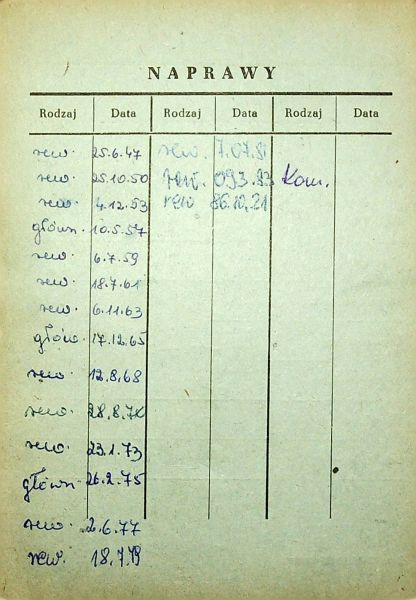 NAPRAWY
Rodzaj Data Rodzaj Data Rodzaj Data
rew. 25.6.47 rew. 7.07.81
rew. 25.10.50 rew. 093.83 Kom.
rew. 4.12.53 rew 86.10.21
główn. 10.5.57
rew. 6.7.59
rew. 18.7.61
rew. 6.11.63
główn. 17.12.65
rew. 12.8.68
rew. 28.8.70
rew. 23.1.73
główn. 26.2.75
rew. 2.6.77
rew. 18.7.79